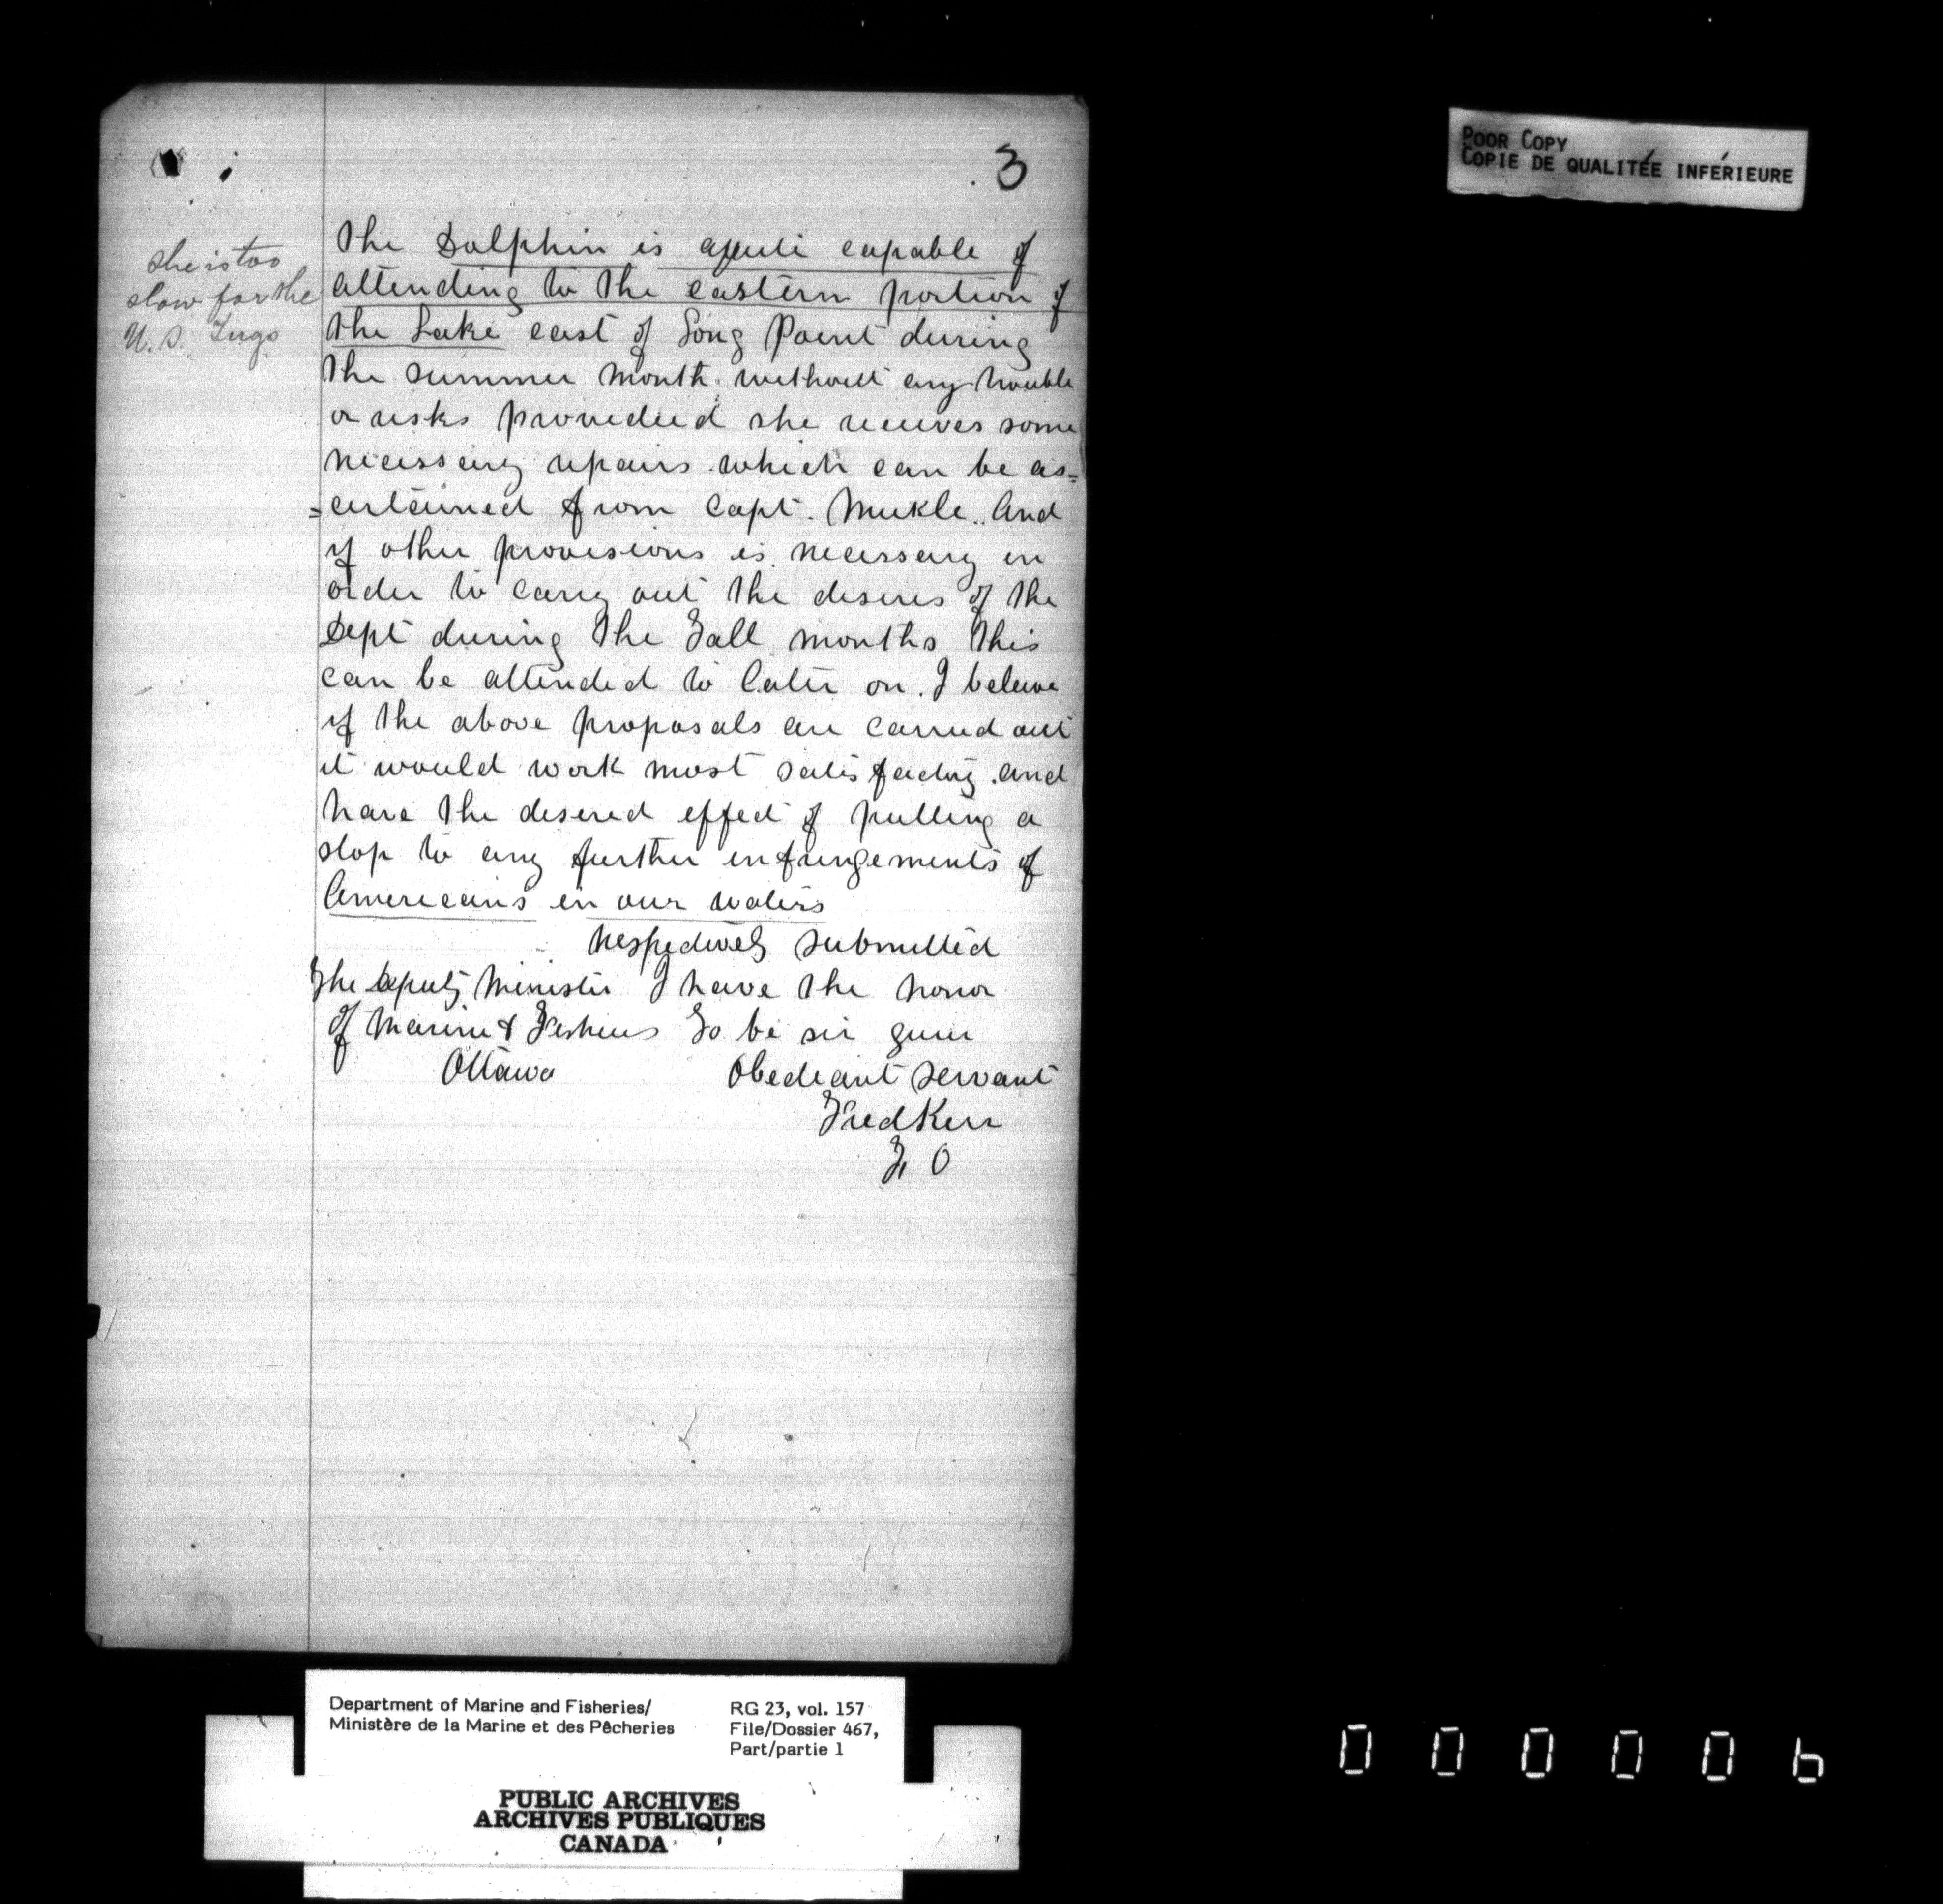 3
she is too
slow for the
U.S. Tugs
The Dolphin is quite capable of
attending to the eastern portion of
the Lake east of Long Point during
the summer month. without any trouble
or risks provided she receives some
necessary repairs which can be as=
=certained from Capt. And
if other provisions is necessary in
order to carry out the desires of the
Dept during the Fall months this
can be attended to later on. I beleive
if the above proposals are carried out
it would work most satisfactory and
have the desired effect of putting a
stop to any further infringements of
Americans in our waters
Respectively submitted
The Deputy Minister I have the honor
of Marine & Fisheries To be sir your
Ottawa Obediant Servant
Fred Kerr
F O
POOR COPY
COPIE DE QUALITÉE INFÉRIEURE
Department of Marine and Fisheries/
Ministère de la Marine et des Pêcheries
RG 23, vol. 157
File/Dossier 467,
Part/partie 1
PUBLIC ARCHIVES
ARCHIVES PUBLIQUES
CANADA
0 0 0 0 0 6